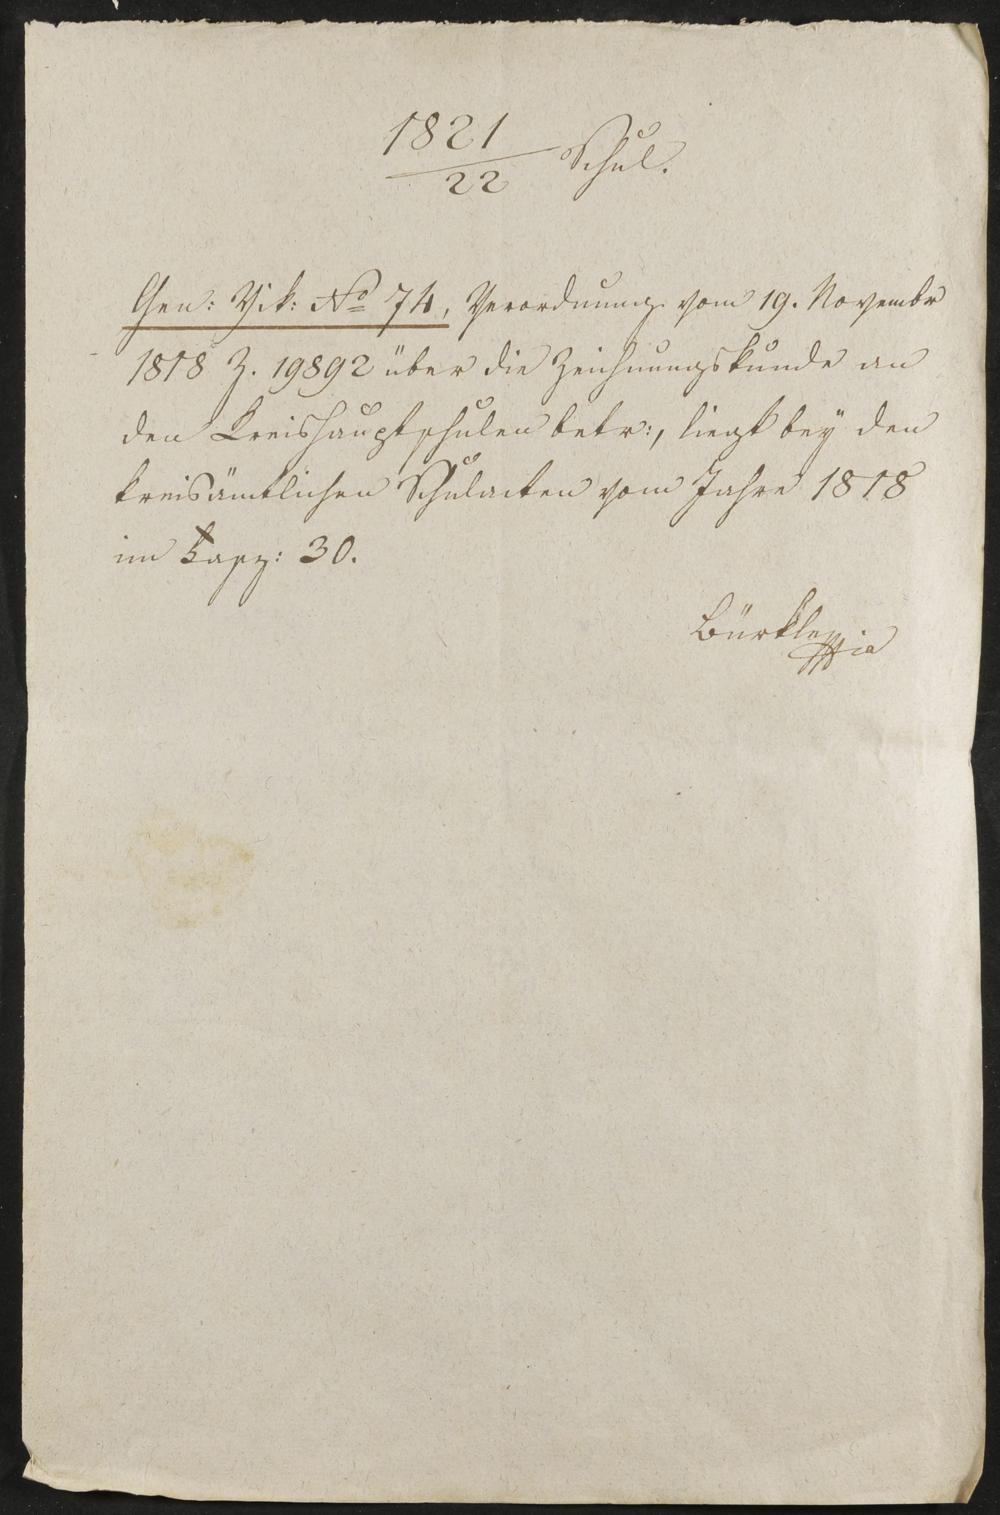 1821/22 Schul.
Gen: Vik: No 74, Verordnung vom 19. Novembr
1818 Z. 19892 über die Zeichnungskunde an
den Kreishauptschulen betr:, liegt bey den
kreisämtlichen Schulacten vom Jahre 1818
im Fasz: 30.
Bürkle